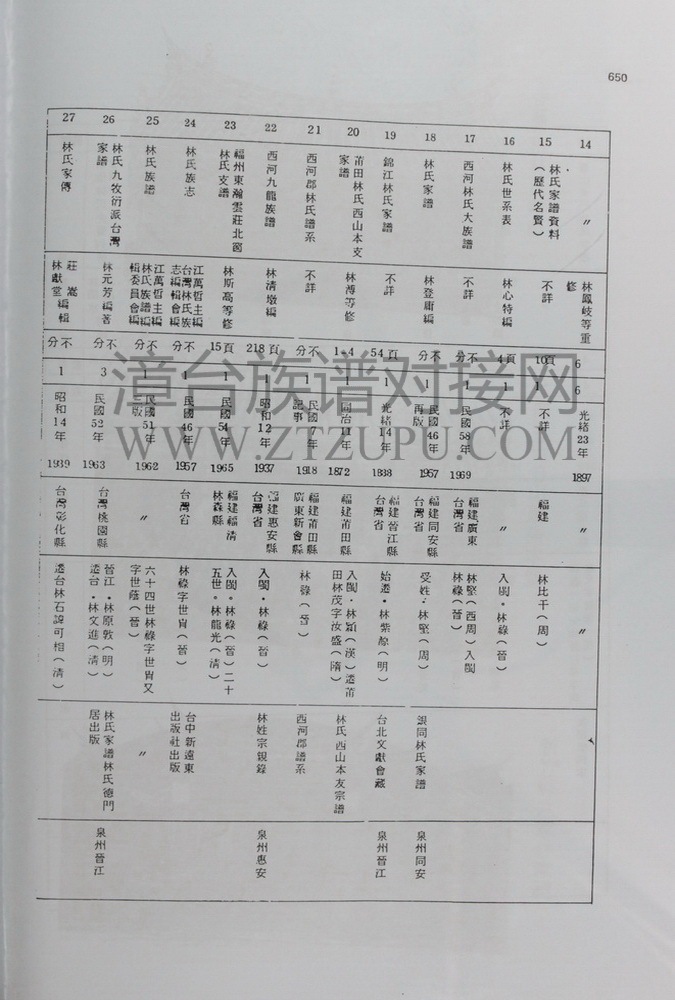 650
14
〃
林鳳岐等重
修
6
6
光緒23年
1897
〃
〃
15
林氏家譜資料
（歷代名賢）
不詳
10頁
1
不詳
福建
林比干（周）
16
林氏世系表
林心特編
4頁
1
不詳
〃
入閩·林祿（晉）
17
西河林氏大族譜
不詳
分不
1
民國58年
1969
福建廣東
台灣省
林堅（西周）入閩
林祿（晉）
18
林氏家譜
林登庸編
分不
1
民國46年
再版
1957
福建同安縣
台灣省
受姓·林堅（周）
銀同林氏家譜
泉州同安
19
錦江林氏家譜
不詳
54頁
1
光緒14年
1888
福建晉江縣
台灣省
始遷·林紫（明）
台北文獻會藏
泉州晉江
20
莆田林氏西山本支
家譜
林溥等修
1-4
1
同治11年
1872
福建莆田縣
入閩·林穎（漢）遷莆
田林茂字汝盛（隋）
林氏西山本友宗譜
21
西河郡林氏譜系
不詳
分不
1
民國7年
記事
1918
福建莆田縣
廣東新會縣
林祿（晉）
西河郡譜系
22
西河九龍族譜
林清墩編
218頁
1
昭和12年
1937
福建惠安縣
台灣省
入閩·林祿（晉）
林姓宗親錄
泉州惠安
23
福州東瀚雲莊北窗
林氏支譜
林斯高等修
15頁
1
民國54年
1965
福建福清
林森縣
入閩·林祿（晉）二十
五世·林龍光（清）
24
林氏族志
江萬哲主編
台灣林氏族
志編輯會編
分不
1
民國46年
1957
台灣省
林祿字世胄（晉）
台中新遠東
出版社出版
25
林氏族譜
江萬哲主編
林氏族譜編
輯委員會編
分不
1
民國51年
三版
1962
〃
六十四世林祿字世胄又
字世蔭（晉）
〃
26
林氏九牧衍派台灣
家譜
林元芳編著
分不
3
民國52年
1963
台灣桃園縣
晉江·林原敦（明）
遷台·林文進（清）
林氏家譜林氏德門
居出版
泉州晉江
27
林氏家傳
莊嵩
林獻堂編輯
分不
1
昭和14年
1939
台灣彰化縣
遷台林石諱可相（清）
漳台族谱对接网
WWW.ZTZUPU.COM